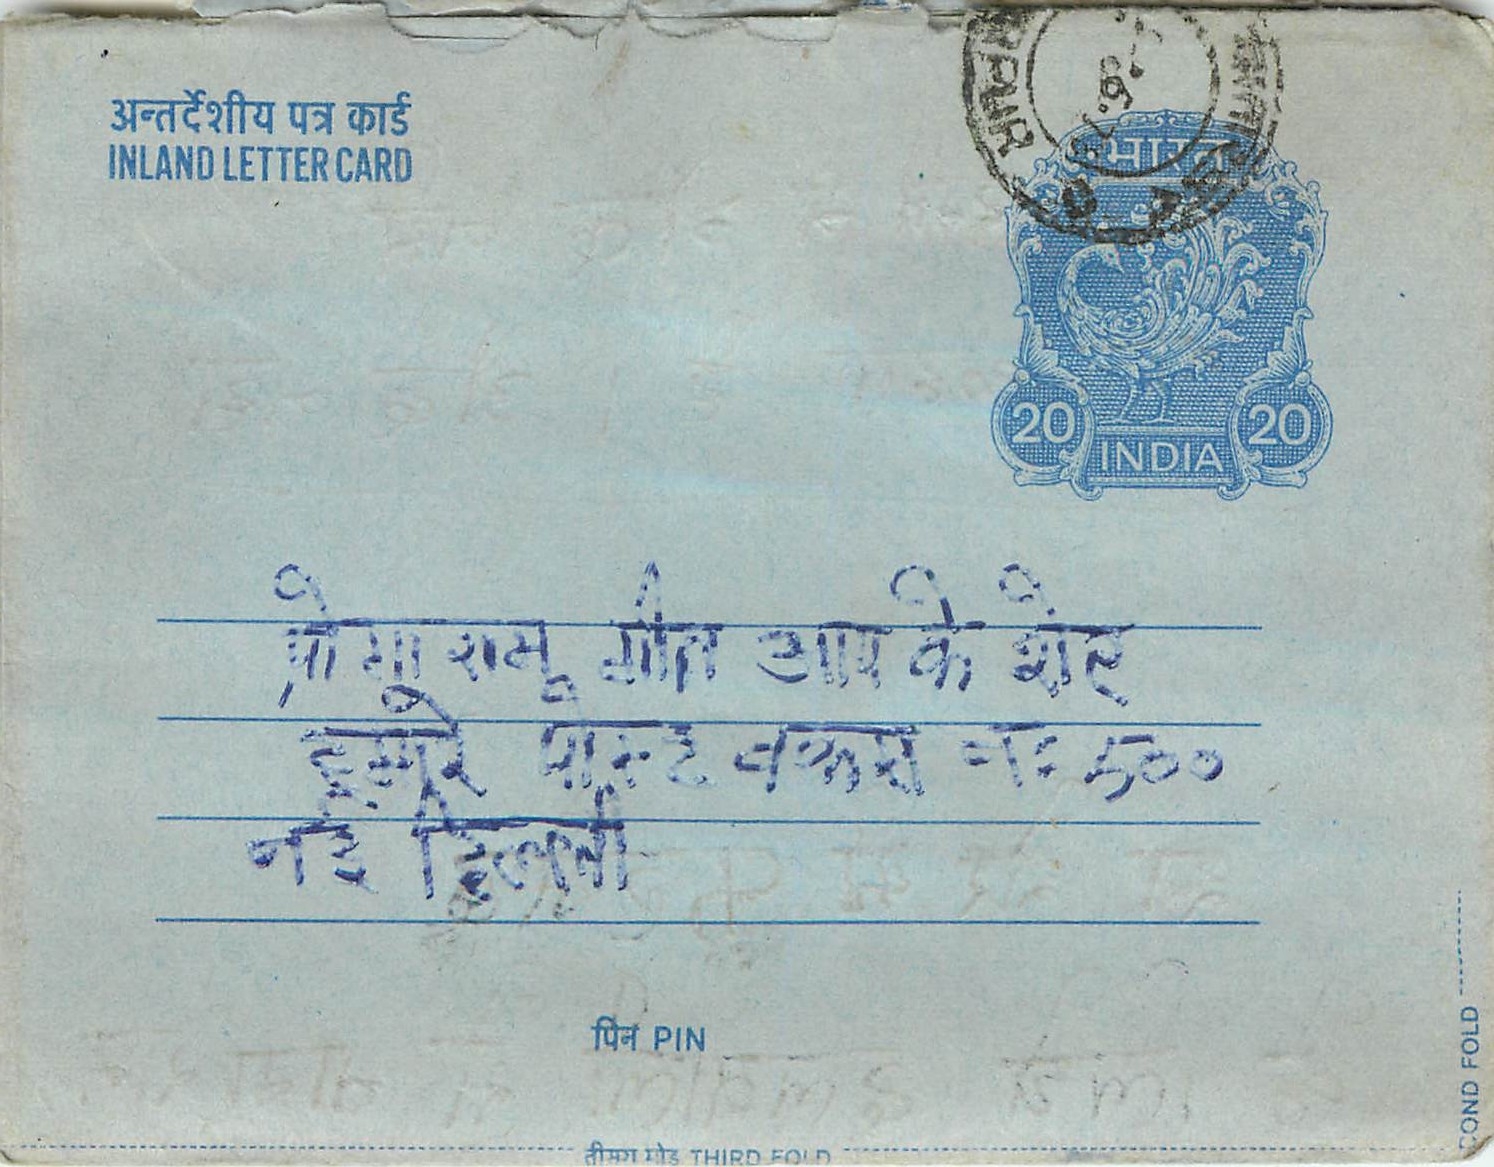 अन्तर्देशीय पत्र कार्ड
INLAND LETTER CARD
भारत
20 20
INDIA
प्रोग्राम गीत आपके शेर
हमारे पोस्ट बक्स नः 500
नई दिल्ली
पिन PIN
COND FOLD
तीसरा मोड़ THIRD FOLD